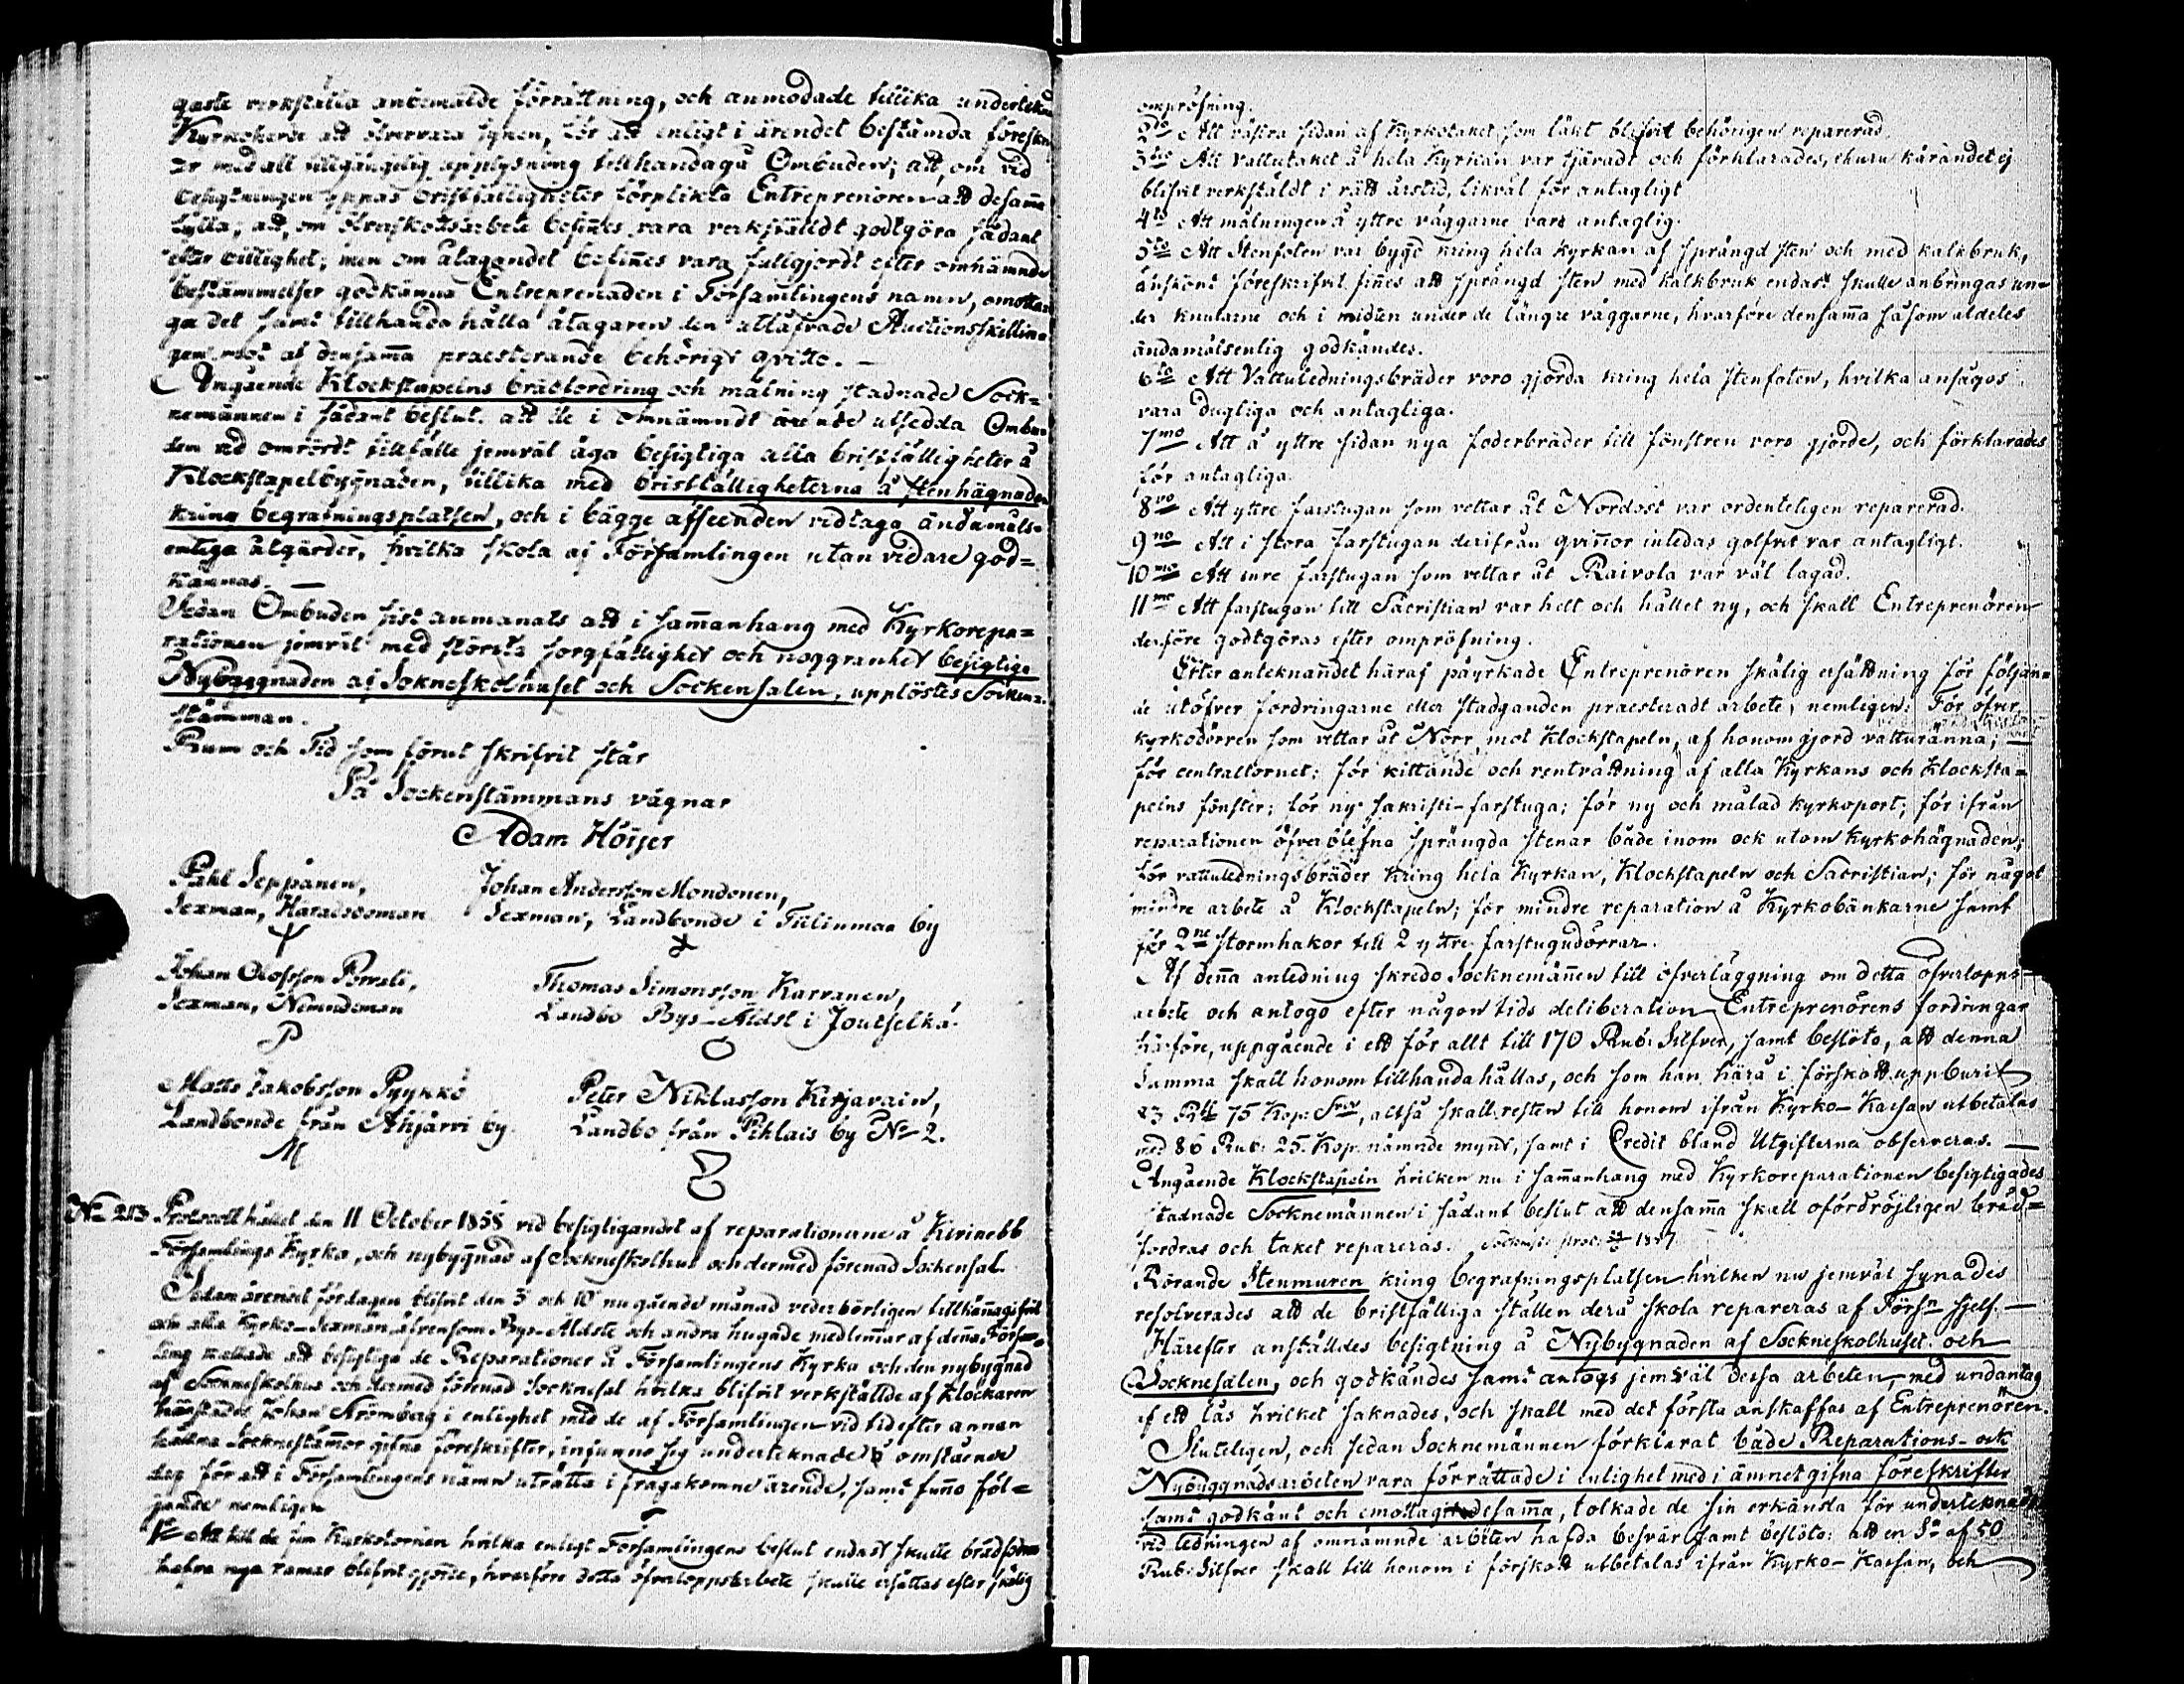 gaste verkställa anbemälde förrättning, och anmodade tillika underteknad
Kyrkoherde att öfvervara synen, för att enligt i ärendet bestämda föreskri
er med all tillgängelig upplysning tillhandagå Ombuden; att, om vid
besigtningen yppas bristfälligheter förplikta Entreprenören att desam̄a
fylla; att, om öfverskottsarbete befin̄es vara verkställdt godtgöra sådant
efter billighet; men om åtagandet befin̄es vara fullgjordt efter omnämnde
bestämmelser godkänna Entreprenaden i Församlingens namn,
ga det samt tillhanda hålla åtagaren den utläfvade Auctionsskillin-
gen emot af densam̄a praesterande behörigt qvitto. —
Angående Klockstapelns brädfordring och målning stadnade Sock=
nemännen i sådant beslut. att de i omnämndt ärende utsedda Ombu
den vid omrördt tillfälle jemväl äga besigtiga alla bristfälligheter å
Klockstapelbygnaden, tillika med bristfälligheterna å stenhägnaden
kring begrafningsplatsen, och i bägge afseenden vidtaga ändamåls-
enliga åtgärder, hvilka skola af Församlingen utan vidare god=
kännas. —
Sedan Ombuden sist anmanats att i sam̄anhang med Kyrkorepa=
rationen jemväl med största sorgfällighet och noggranhet besigtiga
Nybyggnaden af Sokneskolhuset och Sockensalen, upplöstes Socken-
stämman.
Rum och Tid som förut skrifvit står
På Sockenstämmans vägnar
Adam Höijer
Påhl Seppänen, Johan Andersson Mondonen,
Sexman, Häradsdoman Sexman, Landbonde i Tiilinmaa by
Johan Olofsson Thomas Simonsson Karvanen,
Sexman, Nemndeman Landbo Bys-Äldst i Joutselkä.
P O
Matts Jakobsson Pyykkö Peter Niklasson Kirjavain,
Landbonde från Ahjärvi by. Landbo från Pihlais by No 2.
M
No 213 Protocoll hållet den 11 October 1858 vid besigtigandet af reparationerne å Kivinebb
Församlings Kyrka, och nybygnad af Sockneskolhus och dermed förenad Sockensal.
Sedan ärendet fördagen blifvit den 3 och 10 nu gående månad vederbörligen tillkän̄agifvit
och alla Kyrko-Sexmän, äfvensom Bys-Äldste och andra hugade medlem̄ar af den̄a Försam-
ling kallade att besigtiga de Reparationer å Församlingens Kyrka och den nybygnad
af Sockneskolhus och dermed förenad Socknesal hvilka blifvit verkställde af Klockaren
härstädes Johan Strömberg i enlighet med de af Församlingen vid tid efter annan
hållna Socknestäm̄or gifna föreskrifter, infunno sig undertecknade å omstående
dag för att i Församlingens namn uträtta i fragakomne ärende, samt fun̄o föl=
jande nemligen
1o Att till de fem Kyrkotornen hvilka enligt Församlingens beslut endast skulle brädfodras
hafva nya ramar blifvit gjorde, hvarföre detta öfverloppsarbete skulle ersättas efter skälig
ompröfning.
2do Att västra sidan af Kyrkotaket som läkt blifvit behörigen reparerad
3tio Att vattutaket å hela Kyrkan var tjäradt och förklarades, ehuru kärandet ej
blifvit verkstäldt i rätt årstid, likväl för antagligt
4to Att målningen å yttre väggarne vara antaglig.
5to Att Stenfoten var bygd kring hela kyrkan af sprängd sten och med kalkbruk,
änskönt föreskrifvit fin̄es att sprängd sten med kalkbruk endast skulle anbringas un-
der knutarne och i midten under de längre väggarne, hvarföre densam̄a såsom aldeles
ändamålsenlig godkändes.
6to Att Vattuledningsbräder voro gjorda kring hela stenfoten, hvilka ansågos
vara dugliga och antagliga.
7mo Att å yttre sidan nya foderbräder till fönstren voro gjorde, och förklarades
för antagliga.
8vo Att yttre farstugan som vettar åt Nordost var ordenteligen reparerad.
9no Att i stora farstugan derifrån qvin̄or inledas golfvet var antagligt.
10mo Att inre farstugan som vettar åt Raivola var väl lagad.
11me Att farstugan till Sacristian var helt och hållet ny, och skall Entreprenören
derföre godtgöras efter ompröfning.
Efter antekna̅ndet häraf påyrkade Entreprenören skälig ersättning för följan=
de utöfver fordringarne eller stadganden praesteradt arbete, nemligen: För öfver
kyrkodörren som vettar åt Norr mot Klockstapeln, af honom gjord vatturänna; —
för centraltornet; för kittande och rentvättning af alla Kyrkans och Klocksta=
pelns fönster; för ny sakristi-farstuga; för ny och målad kyrkoport; för ifrån
reparationen öfverblefna sprängda stenar både inom ock utom Kyrkohägnaden;
för vattuledningsbräder kring hela Kyrkan, Klockstapeln och Sacristian; för något
mindre arbete å Klockstapeln; för mindre reparation å Kyrkobänkarne samt
för 2ne stormhakor till 2 yttre farstugudörrar.
Af den̄a anledning skredo Socknemän̄en till öfverläggning om detta öfverlopps-
arbete och antogo efter någon tids deliberation Entreprenörens fordringar
härföre, uppgående i ett för allt till 170 Rub. Silfver, samt beslöto, att denna
Summa skall honom tillhanda hållas, och som han härå i förskott uppburit
83 Rbl 75 Kop: Srvr, altså skall resten till honom ifrån Kyrko-Kassan utbetalas
med 86 Rub: 25. Kop. nämnde mynt, samt i Credit bland Utgifterna observeras. —
Angående Klockstapeln hvilken nu i sam̄anhang med Kyrkoreparationen besigtigades
stadnade Socknemännen i sådant beslut att densam̄a skall ofördröjligen bräd=
fordras och taket repareras. 1857
Rörande Stenmuren kring begrafningsplatsen hvilken nu jemväl synades
resolverades att de bristfälliga ställen derå skola repareras af Försn sjelf. —
Härefter anställdes besigtning å Nybygnaden af Sockneskolhuset och
Socknesalen, och godkändes samt antogs jemväl dessa arbeten, med undantag
af ett lås hvilket saknades, och skall med det första anskaffas af Entreprenören.
Sluteligen, och sedan Socknemännen förklarat både Reparations- och
Nybyggnadsarbeten vara förrättade i enlighet med i ämnet gifna föreskrifter
samt godkänt och emottagit desam̄a, tolkade de sin erkänsla för undertecknads
vid ledningen af omnämnde arbeten hafda besvär samt beslöto: att en Sa af 50
Rub: Silfver skall till honom i förskott utbetalas ifrån Kyrko-Kassan, och